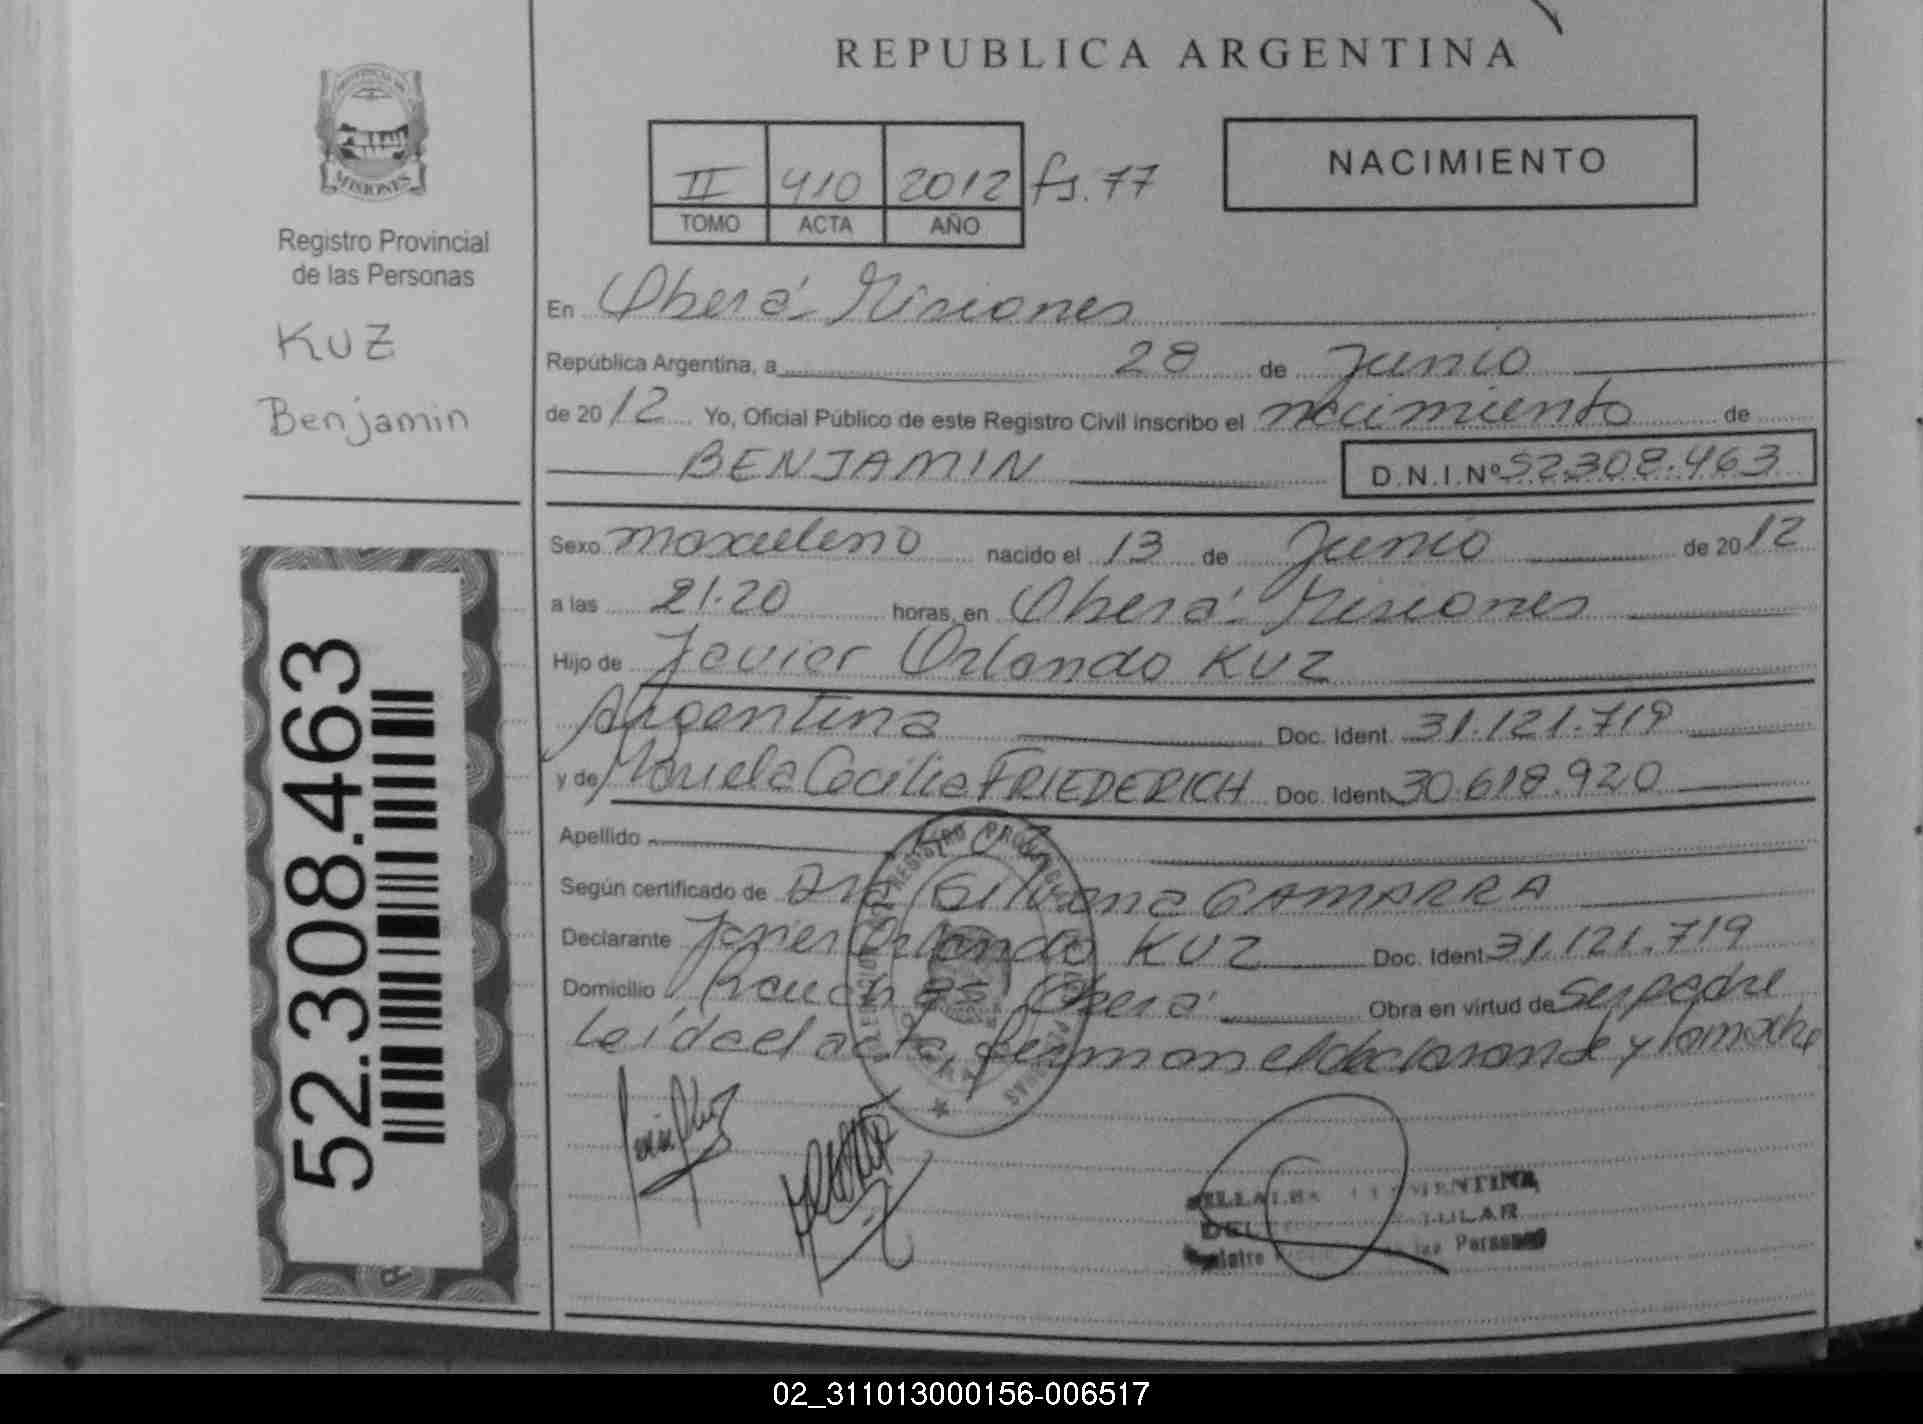 REPUBLICA ARGENTINA
PROVINCIA DE
MISIONES
Registro Provincial
de las Personas
KUZ
Benjamin
52.308.463
II 410 2012 fs. 77
TOMO ACTA AÑO
NACIMIENTO
En Oberá Misiones
República Argentina, a 28 de Junio
de 2012 Yo, Oficial Público de este Registro Civil inscribo el nacimiento de
BENJAMIN D.N.I.Nº 52.308.463
Sexo masculino nacido el 13 de Junio de 2012
a las 21.20 horas, en Oberá Misiones
Hijo de Javier Orlando KUZ
Argentina Doc. Ident. 31.121.719
y de Mariela Cecilia FRIEDERICH Doc. Ident. 30.618.920
Apellido KUZ
Según certificado de Dra Silvana GAMARRA
Declarante Javier Orlando KUZ Doc. Ident. 31.121.719
Domicilio Oberá Obra en virtud de ser padre
Leída el acta, firman el declarante y la madre
REGISTRO
PERSONAS
02_311013000156-006517